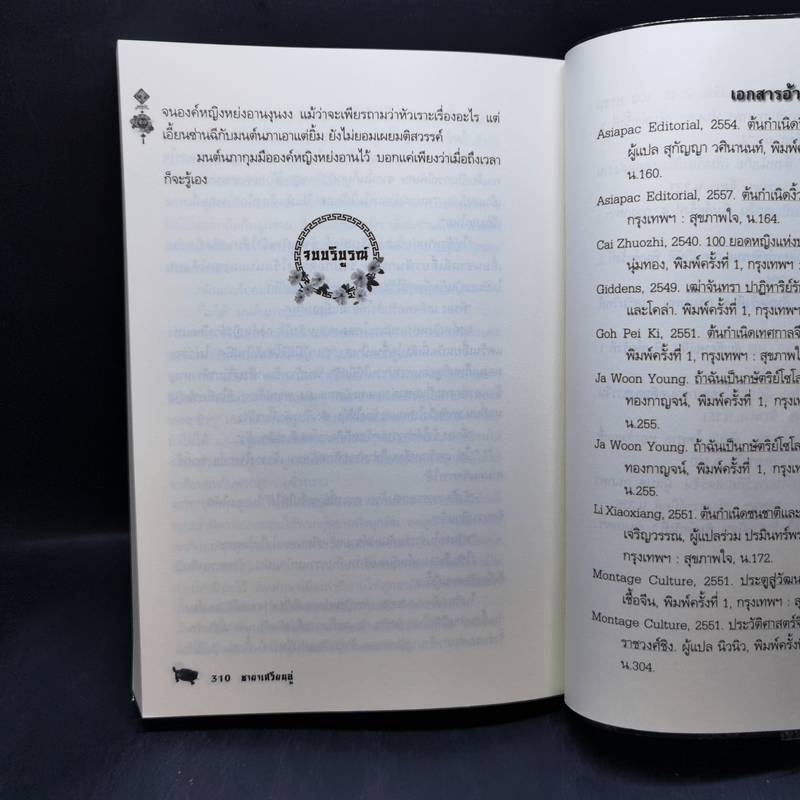 จนองค์หญิงหย่งอานงุนงง แม้ว่าจะเพียรถามว่าหัวเราะเรื่องอะไร แต่
เอี้ยนซ่านฉีกับมนต์นภาเอาแต่ยิ้ม ยังไม่ยอมเผยมติสวรรค์
มนต์นภากุมมือองค์หญิงหย่งอานไว้ บอกแค่เพียงว่าเมื่อถึงเวลา
ก็จะรู้เอง
จบบริบูรณ์
310 ชายาเสวียนอู่
เอกสารอ้า
Asiapac Editorial, 2554. ต้นกำเนิดวั
ผู้แปล สุกัญญา วศินานนท์, พิมพ์ครั้
น.160.
Asiapac Editorial, 2557. ต้นกำเนิดงิ้ว
กรุงเทพฯ : สุขภาพใจ, น.164.
Cai Zhuozhi, 2540. 100 ยอดหญิงแห่งแ
นุ่มทอง, พิมพ์ครั้งที่ 1, กรุงเทพฯ :
Giddens, 2549. เฒ่าจันทรา ปาฏิหาริย์รั
และโคล่า. พิมพ์ครั้งที่ 1, กรุงเทพฯ
Goh Pei Ki, 2551. ต้นกำเนิดเทศกาลจี
พิมพ์ครั้งที่ 1, กรุงเทพฯ : สุขภาพใ
Ja Woon Young. ถ้าฉันเป็นกษัตริย์โซโล
ทองกาญจน์, พิมพ์ครั้งที่ 1, กรุงเท
น.255.
Ja Woon Young. ถ้าฉันเป็นกษัตริย์โซโล
ทองกาญจน์, พิมพ์ครั้งที่ 1, กรุงเท
น.255.
Li Xiaoxiang, 2551. ต้นกำเนิดชนชาติและ
เจริญวรรณ, ผู้แปลร่วม ปรมินทร์พร
กรุงเทพฯ : สุขภาพใจ, น.172.
Montage Culture, 2551. ประตูสู่วัฒน
เชื้อจีน, พิมพ์ครั้งที่ 1, กรุงเทพฯ : ส
Montage Culture, 2551. ประวัติศาสตร์จี
ราชวงศ์ชิง. ผู้แปล นิวนิว, พิมพ์ครั้งที่
น.304.